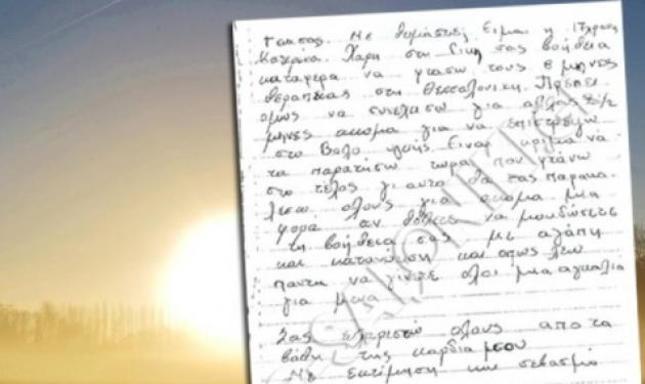 Γειά σας. Με θυμάστε; Είμαι η 17χρονη
Κατερίνα. Χάρη στη δική σας βοήθεια
κατάφερα να φτάσω τους 8 μήνες
θεραπείας στη Θεσσαλονίκη. Πρέπει
όμως να συνεχίσω για άλλους 2 1/2
μήνες ακόμα για να επιστρέψω
στο Βόλο υγιής. Είναι κρίμα να
τα παρατήσω τώρα που φτάνω
στο τέλος γι αυτό θα σας παρακα
λέσω όλους για ακόμα μία
φορά αν θέλετε να μου δώσετε
τη βοήθειά σας με αγάπη
και κατανόηση και όπως λέω
πάντα να γίνουμε όλοι μια αγκαλιά
για μένα
Σας ευχαριστώ όλους από τα
βάθη της καρδιά μου
Με εκτίμηση και σεβασμό